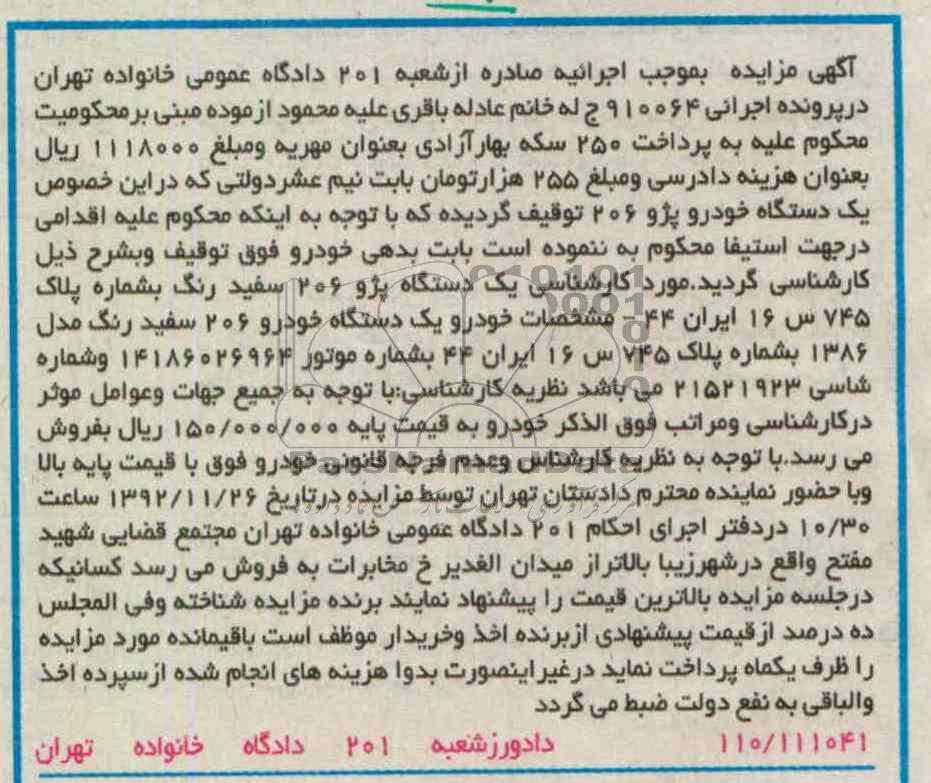 آگهی مزایده بموجب اجرائیه صادره ازشعبه ۲۰۱ دادگاه عمومی خانواده تهران
درپرونده اجرائی ۹۱۰۰۶۴ ج له خانم عادله باقری علیه محمود ازموده مبنی برمحکومیت
محکوم علیه به پرداخت ۲۵۰ سکه بهارآزادی بعنوان مهریه ومبلغ ۱۱۱۸۰۰۰ ریال
بعنوان هزینه دادرسی ومبلغ ۲۵۵ هزارتومان بابت نیم عشردولتی که دراین خصوص
یک دستگاه خودرو پژو ۲۰۶ توقیف گردیده که با توجه به اینکه محکوم علیه اقدامی
درجهت استیفا محکوم به ننموده است بابت بدهی خودرو فوق توقیف وبشرح ذیل
کارشناسی گردید.مورد کارشناسی یک دستگاه پژو ۲۰۶ سفید رنگ بشماره پلاک
۷۴۵ س ۱۶ ایران ۴۴ _ مشخصات خودرو یک دستگاه خودرو ۲۰۶ سفید رنگ مدل
۱۳۸۶ بشماره پلاک ۷۴۵ س ۱۶ ایران ۴۴ بشماره موتور ۱۴۱۸۶۰۲۶۹۶۴ وشماره
شاسی ۲۱۵۲۱۹۲۳ می باشد نظریه کارشناسی:با توجه به جمیع جهات وعوامل موثر
درکارشناسی ومراتب فوق الذکر خودرو به قیمت پایه ۱۵۰/۰۰۰/۰۰۰ ریال بفروش
می رسد.با توجه به نظریه کارشناس وعدم فرجه قانونی خودرو فوق با قیمت پایه بالا
وبا حضور نماینده محترم دادستان تهران توسط مزایده درتاریخ ۱۳۹۲/۱۱/۲۶ ساعت
۱۰/۳۰ دردفتر اجرای احکام ۲۰۱ دادگاه عمومی خانواده تهران مجتمع قضایی شهید
مفتح واقع درشهرزیبا بالاتراز میدان الغدیر خ مخابرات به فروش می رسد کسانیکه
درجلسه مزایده بالاترین قیمت را پیشنهاد نمایند برنده مزایده شناخته وفی المجلس
ده درصد ازقیمت پیشنهادی ازبرنده اخذ وخریدار موظف است باقیمانده مورد مزایده
را ظرف یکماه پرداخت نماید درغیراینصورت بدوا هزینه های انجام شده ازسپرده اخذ
والباقی به نفع دولت ضبط می گردد
۱۱۰/۱۱۱۰۴۱ دادورزشعبه ۲۰۱ دادگاه خانواده تهران